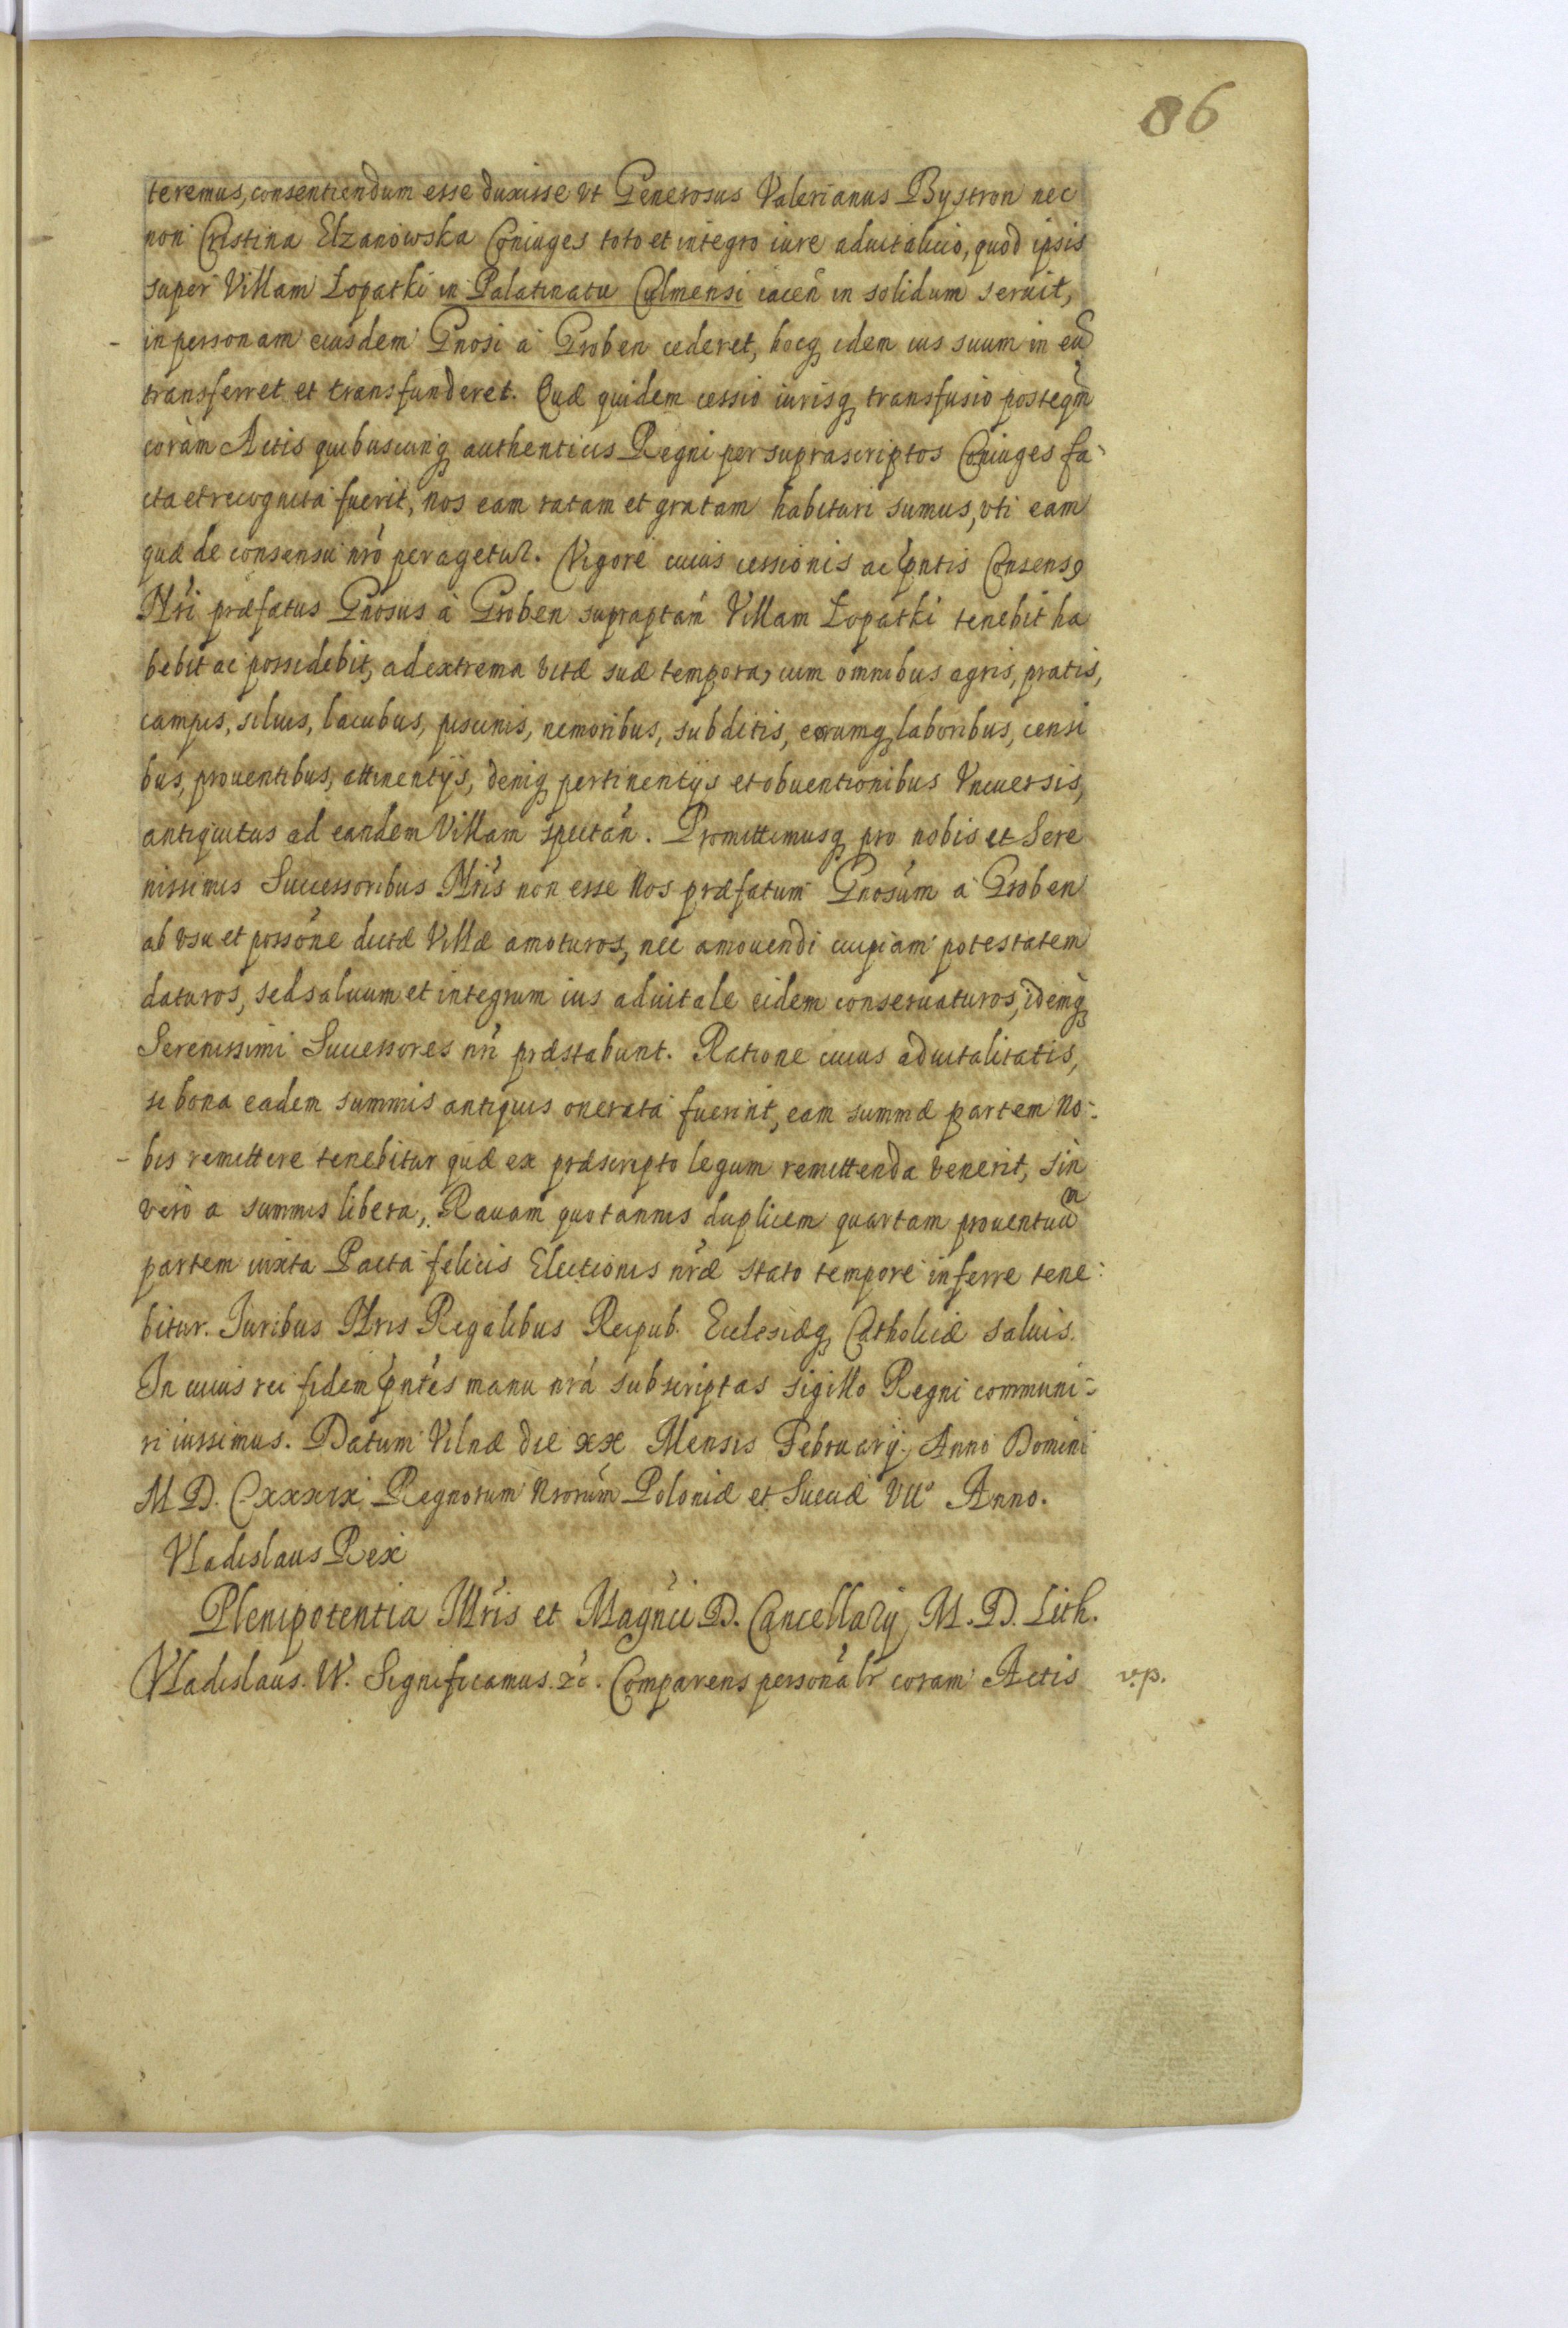 86
teremus, consentiendum esse duxisse vt Generosus Valerianus Bystron nec
non Cristina Elzanowska Coniuges toto et integro iure aduitalicio, quod ipsis
super Villam Łopatki in Palatinatu Culmensi iacen̄ in solidum seruit,
in personam eiusdem Gnosi à Groben cederet, hocq₃ idem ius suum in eū
transferret et transfunderet. Quæ quidem cessio iurisq₃ transfusio posteqm̄
coràm Actis quibuscunq₃ authenticis Regni per suprascriptos Coniuges fa-
cta et recognita fuerit, nos eam ratam et gratam habituri sumus, vti eam
quæ de consensu nr̄o peragetur. Vigore cuius cessionis ac p̄ntis Consensꝯ
Nr̄i præfatus Gnosus à Groben supraptam̄ Villam Łopatki tenebit ha
bebit ac possidebit, ad extrema vitæ suæ tempora, cum omnibus agris, pratis,
campis, siluis, lacubus, piscinis, nemoribus, subditis, eorumq₃ laboribus, censi
bus, prouentibus, attinentijs, deniq₃ pertinentijs et obuentionibus Vniuersis,
antiquitus ad eandem Villam spectan̄. Promittimusq₃ pro nobis et Sere
nissimis Successoribus Nr̄is non esse Nos præfatum Gnosum à Groben
ab vsu et possōne dictæ Villæ amoturos, nec amouendi cuipiam potestatem
daturos, sed saluum et integrum ius aduitale eidem conseruaturos, idemq₃
Serenissimi Successores nr̄i præstabunt. Ratione cuius aduitalitatis,
si bona eadem summis antiquis onerata fuerint, eam summæ partem No-
bis remittere tenebitur quæ ex præscripto legum remittenda venerit, sin
verò a summis libera, Rauam quotannis duplicem quartam prouentuū
partem iuxta Pacta felicis Electionis nr̄æ stato tempore inferre tene-
bitur. Iuribus Nr̄is Regalibus Reipub. Ecclesiæq₃ Catholicæ saluis.
In cuius rei fidem p̄ntes manu nr̄a subscriptas sigillo Regni communi-
ri iussimus. Datum Vilnæ die xx Mensis Februarij. Anno Domini
M D. Cxxxix Regnorum Nrorum̄ Poloniæ et Sueciæ VII° Anno.
Vladislaus Rex
Plenipotentia Illr̄is et Magn̄ci D. Cancellarij M. D. Lith.
Vladislaus. IV. Significamus. &c. Comparens personal̄r coram Actis v.p.